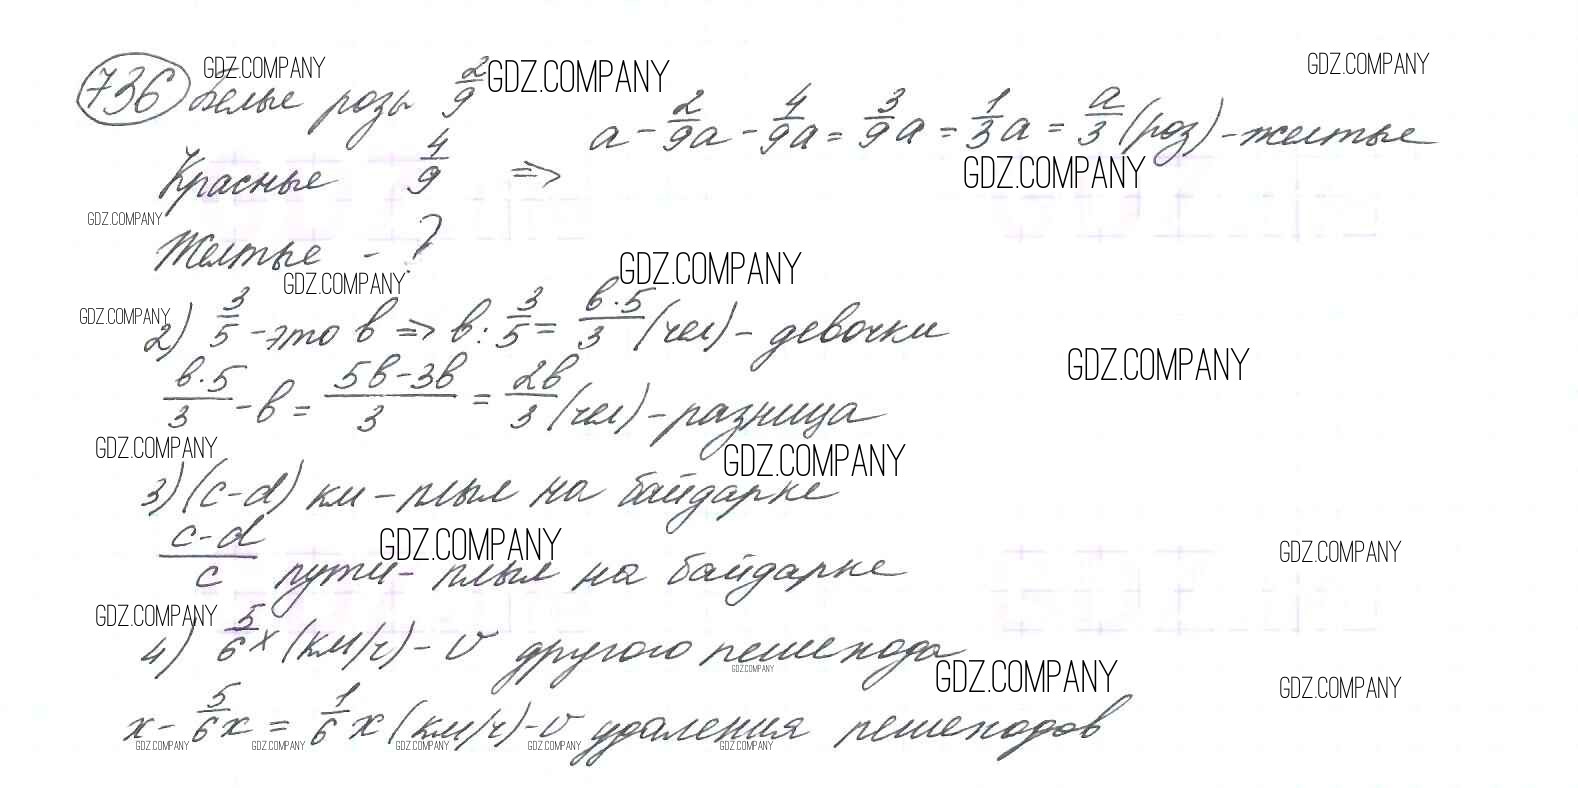 736 GDZ.COMPANY GDZ.COMPANY GDZ.COMPANY
Белые розы 2/9
a - 2/9a - 4/9a = 3/9a = 1/3a = a/3 (роз) - желтые
Красные 4/9 =>
GDZ.COMPANY
GDZ.COMPANY
Желтые - ?
GDZ.COMPANY GDZ.COMPANY
GDZ.COMPANY
2) 3/5 - это в => в : 3/5 = в·5/3 (чел) - девочки
GDZ.COMPANY
в·5/3 - в = 5в-3в/3 = 2в/3 (чел) - разница
GDZ.COMPANY GDZ.COMPANY
3) (c-d) км - плыл на байдарке
GDZ.COMPANY GDZ.COMPANY
c-d/c пути - плыл на байдарке
GDZ.COMPANY
4) 5/6x (км/ч) - v другого пешехода
GDZ.COMPANY GDZ.COMPANY GDZ.COMPANY
x - 5/6x = 1/6x (км/ч) - v удаления пешеходов
GDZ.COMPANY GDZ.COMPANY GDZ.COMPANY GDZ.COMPANY GDZ.COMPANY